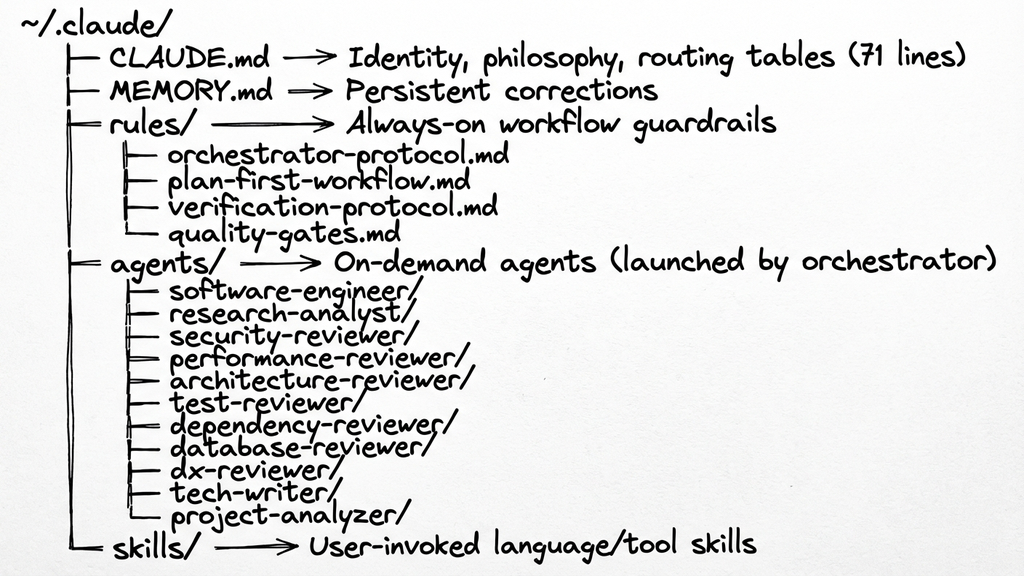 ~/.claude/
CLAUDE.md → Identity, philosophy, routing tables (71 lines)
MEMORY.md → Persistent corrections
rules/ → Always-on workflow guardrails
orchestrator-protocol.md
plan-first-workflow.md
verification-protocol.md
quality-gates.md
agents/ → On-demand agents (launched by orchestrator)
software-engineer/
research-analyst/
security-reviewer/
performance-reviewer/
architecture-reviewer/
test-reviewer/
dependency-reviewer/
database-reviewer/
dx-reviewer/
tech-writer/
project-analyzer/
skills/ → User-invoked language/tool skills